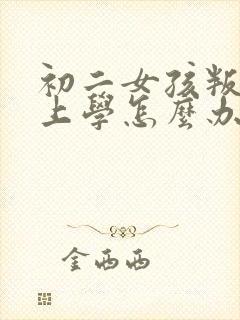 初二女孩叛
上學怎麼办
金西西